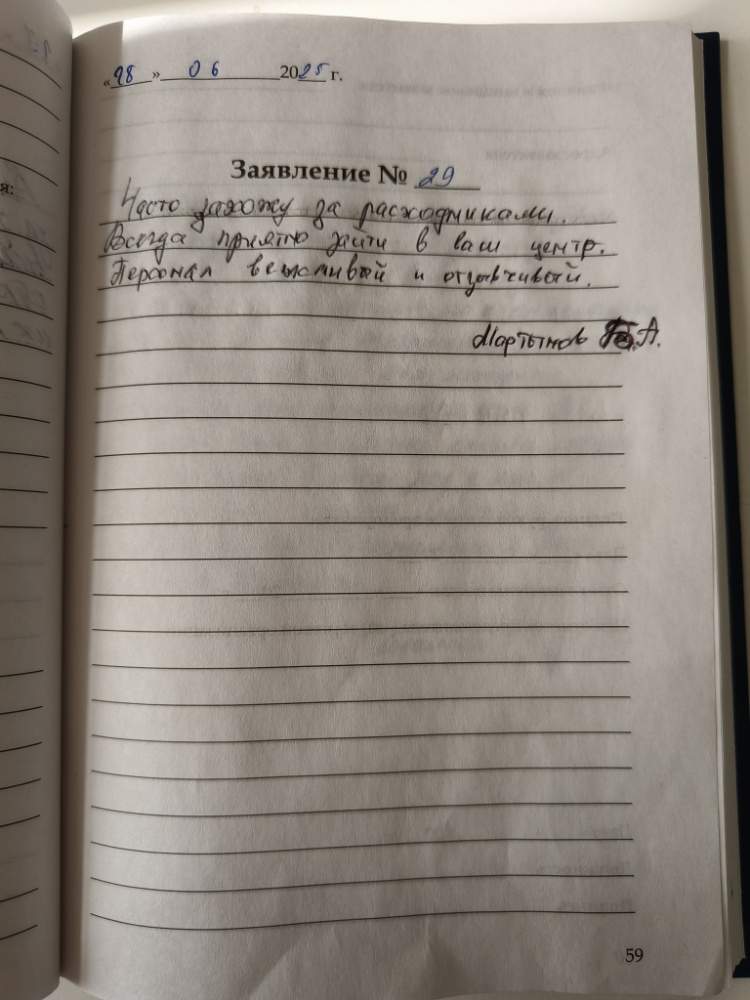 «28» 06 2025 г.
Заявление № 29
Часто захожу за расходниками.
Всегда приятно зайти в ваш центр.
Персонал вежливый и отзывчивый.
Мартынов А.
я:
59